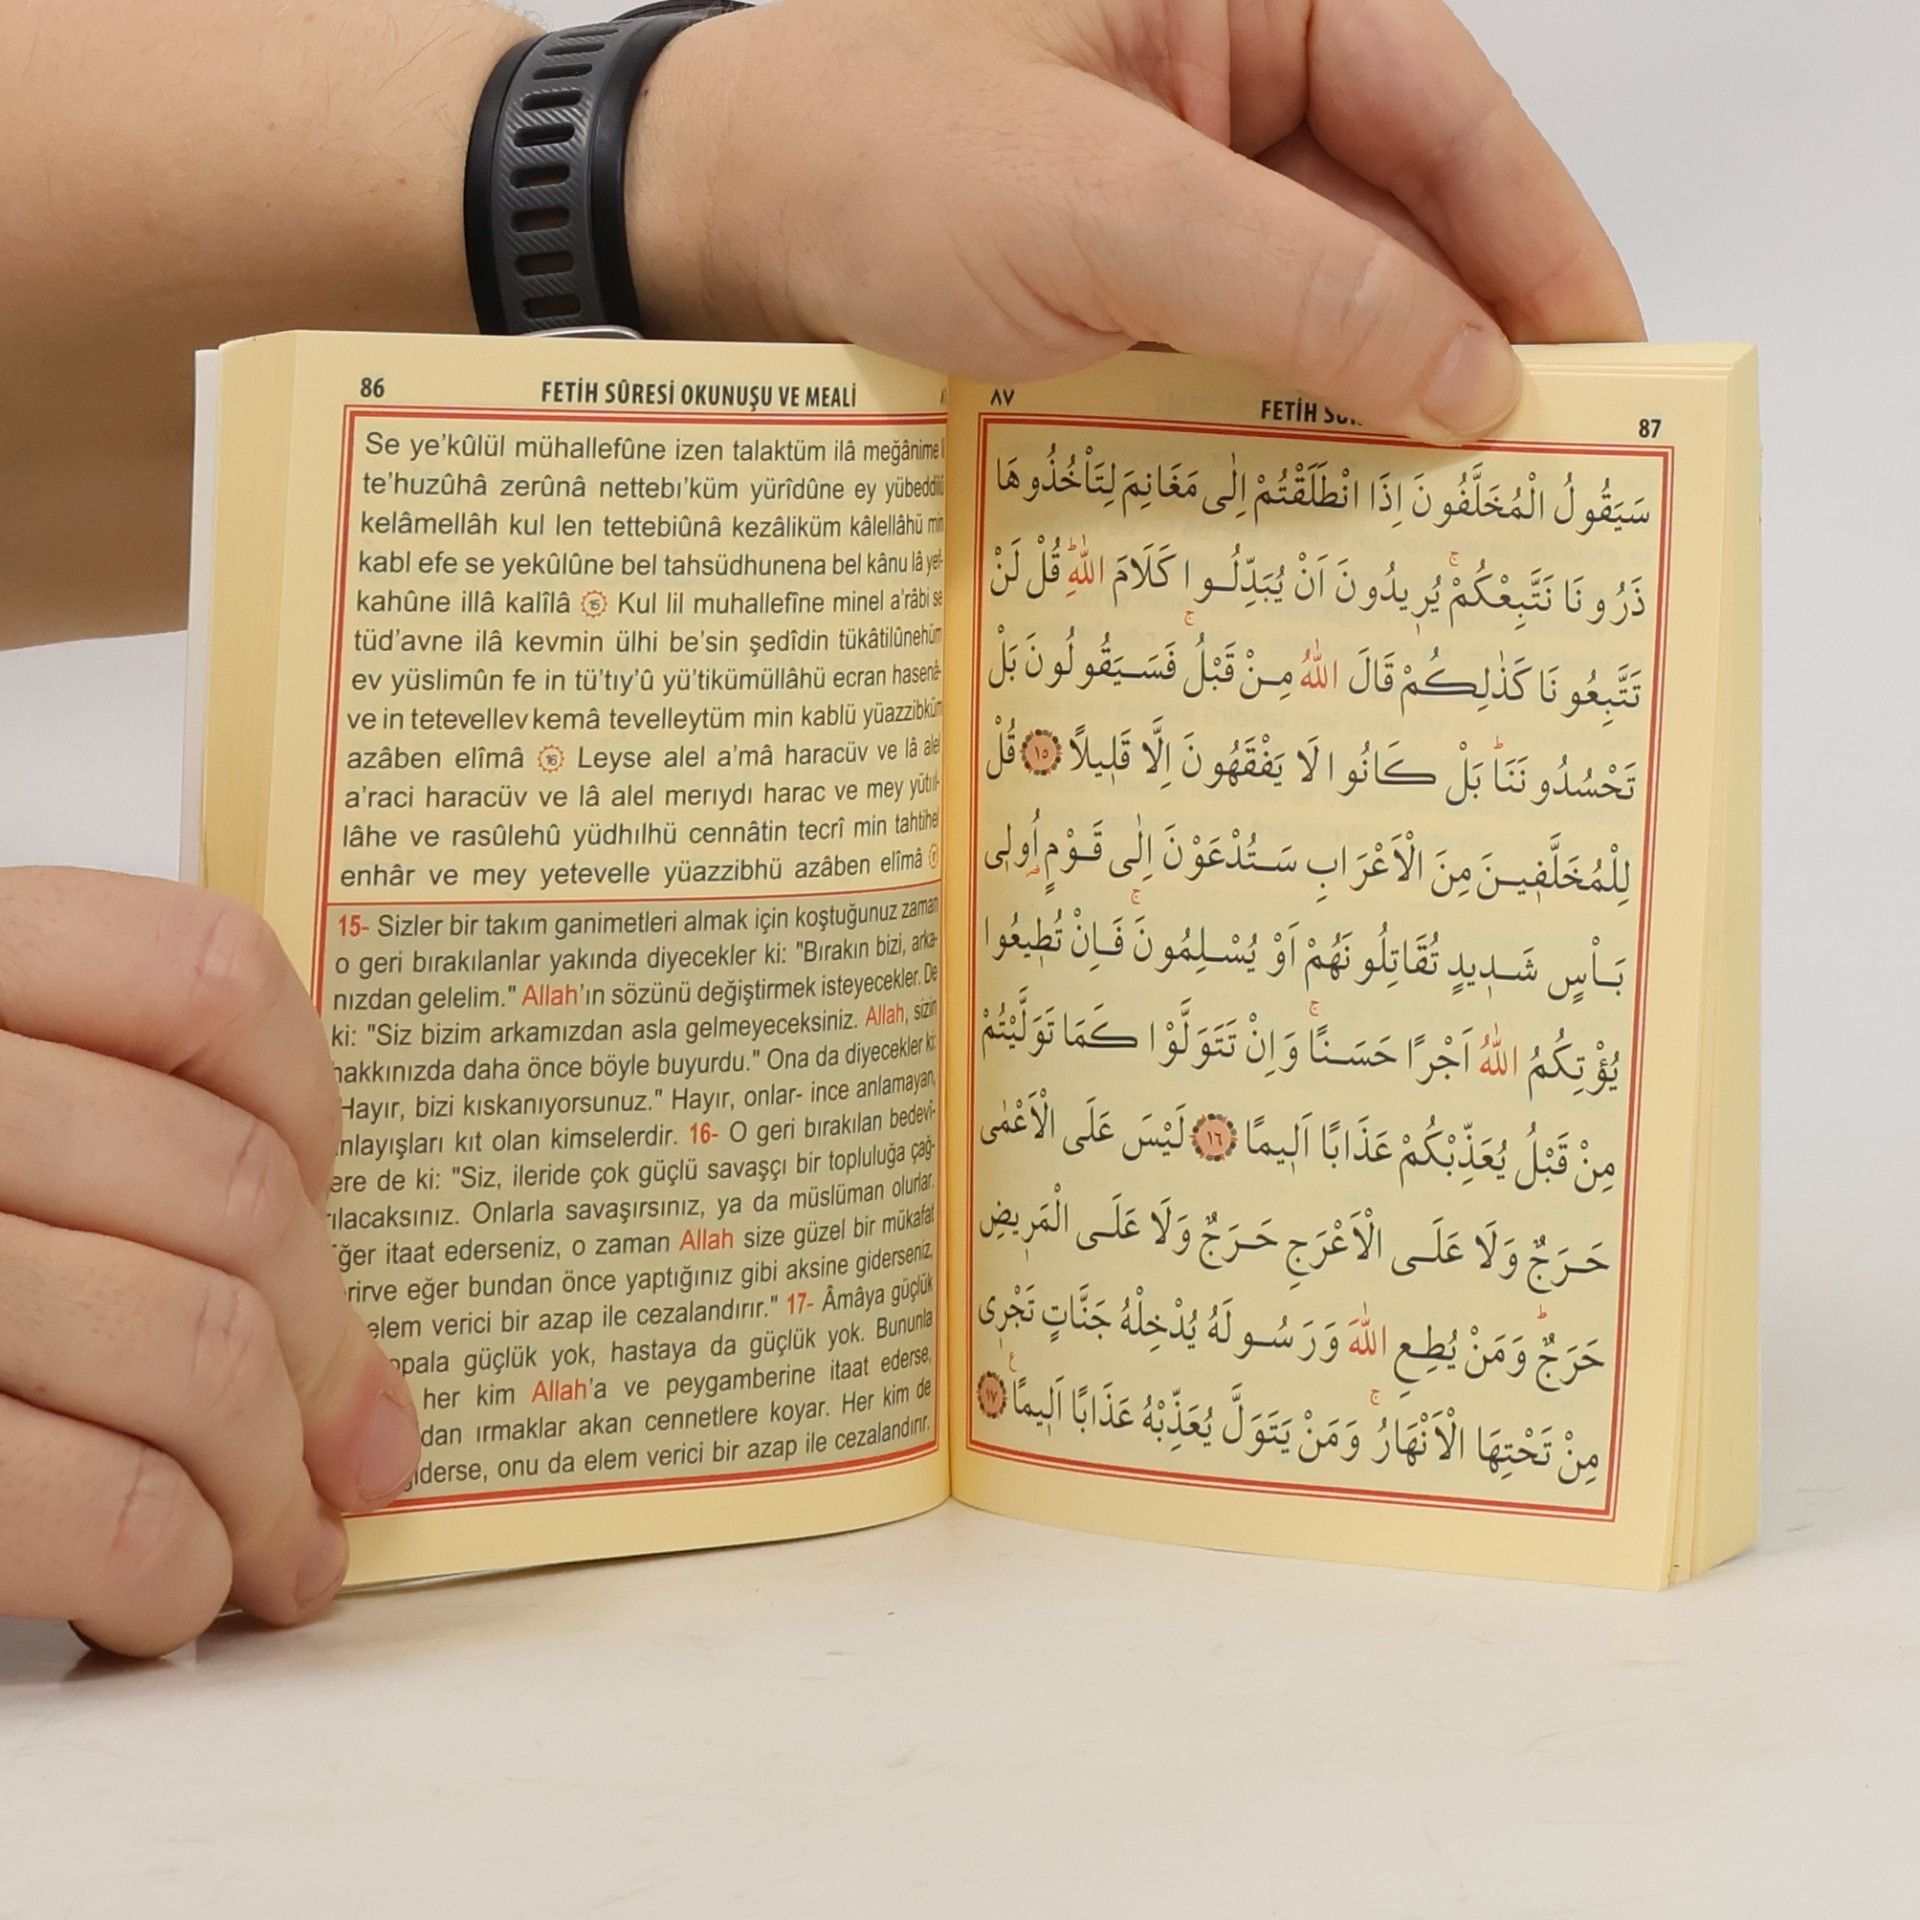 86
FETİH SÛRESİ OKUNUŞU VE MEALİ
Se ye'kûlül mühallefûne izen talaktüm ilâ meğânime
te'huzûhâ zerûnâ nettebı'küm yürîdûne ey yübeddilû
kelâmellâh kul len tettebiûnâ kezâliküm kâlellâhü min
kabl efe se yekûlûne bel tahsüdhunena bel kânu lâ yef-
kahûne illâ kalîlâ 15 Kul lil muhallefîne minel a'râbi se
tüd'avne ilâ kevmin ülhi be'sin şedîdin tükâtilûnehüm
ev yüslimûn fe in tü'tıy'û yü'tikümüllâhü ecran hasenâ-
ve in tetevellev kemâ tevelleytüm min kablü yüazzibküm
azâben elîmâ 16 Leyse alel a'mâ haracüv ve lâ alel
a'raci haracüv ve lâ alel merıydı harac ve mey yütıl-
lâhe ve rasûlehû yüdhılhü cennâtin tecrî min tahtihel
enhâr ve mey yetevelle yüazzibhü azâben elîmâ
15- Sizler bir takım ganimetleri almak için koştuğunuz zaman
o geri bırakılanlar yakında diyecekler ki: "Bırakın bizi, arka-
nızdan gelelim." Allah'ın sözünü değiştirmek isteyecekler. De
ki: "Siz bizim arkamızdan asla gelmeyeceksiniz. Allah, sizin
hakkınızda daha önce böyle buyurdu." Ona da diyecekler ki:
"Hayır, bizi kıskanıyorsunuz." Hayır, onlar- ince anlamayan,
anlayışları kıt olan kimselerdir. 16- O geri bırakılan bedevî-
lere de ki: "Siz, ileride çok güçlü savaşçı bir topluluğa çağ-
rılacaksınız. Onlarla savaşırsınız, ya da müslüman olurlar.
Eğer itaat ederseniz, o zaman Allah size güzel bir mükafat
verirve eğer bundan önce yaptığınız gibi aksine giderseniz,
elem verici bir azap ile cezalandırır." 17- Âmâya güçlük
güçlük yok, hastaya da güçlük yok. Bununla
her kim Allah'a ve peygamberine itaat ederse,
ırmaklar akan cennetlere koyar. Her kim de
giderse, onu da elem verici bir azap ile cezalandırır.
٨٧
FETİH
87
سَيَقُولُ الْمُخَلَّفُونَ اِذَا انْطَلَقْتُمْ اِلٰى مَغَانِمَ لِتَأْخُذُوهَا
ذَرُونَا نَتَّبِعْكُمْۚ يُرٖيدُونَ اَنْ يُبَدِّلُوا كَلَامَ اللّٰهِؕ قُلْ لَنْ
تَتَّبِعُونَا كَذٰلِكُمْ قَالَ اللّٰهُ مِنْ قَبْلُۚ فَسَيَقُولُونَ بَلْ
تَحْسُدُونَنَاؕ بَلْ كَانُوا لَا يَفْقَهُونَ اِلَّا قَلٖيلًا ١٥ قُلْ
لِلْمُخَلَّفٖينَ مِنَ الْاَعْرَابِ سَتُدْعَوْنَ اِلٰى قَوْمٍ اُولٖى
بَأْسٍ شَدٖيدٍ تُقَاتِلُونَهُمْ اَوْ يُسْلِمُونَۚ فَاِنْ تُطٖيعُوا
يُؤْتِكُمُ اللّٰهُ اَجْرًا حَسَنًاۚ وَاِنْ تَتَوَلَّوْا كَمَا تَوَلَّيْتُمْ
مِنْ قَبْلُ يُعَذِّبْكُمْ عَذَابًا اَلٖيمًا ١٦ لَيْسَ عَلَى الْاَعْمٰى
حَرَجٌ وَلَا عَلَى الْاَعْرَجِ حَرَجٌ وَلَا عَلَى الْمَرٖيضِ
حَرَجٌؕ وَمَنْ يُطِعِ اللّٰهَ وَرَسُولَهُ يُدْخِلْهُ جَنَّاتٍ تَجْرٖى
مِنْ تَحْتِهَا الْاَنْهَارُۚ وَمَنْ يَتَوَلَّ يُعَذِّبْهُ عَذَابًا اَلٖيمًا ١٧